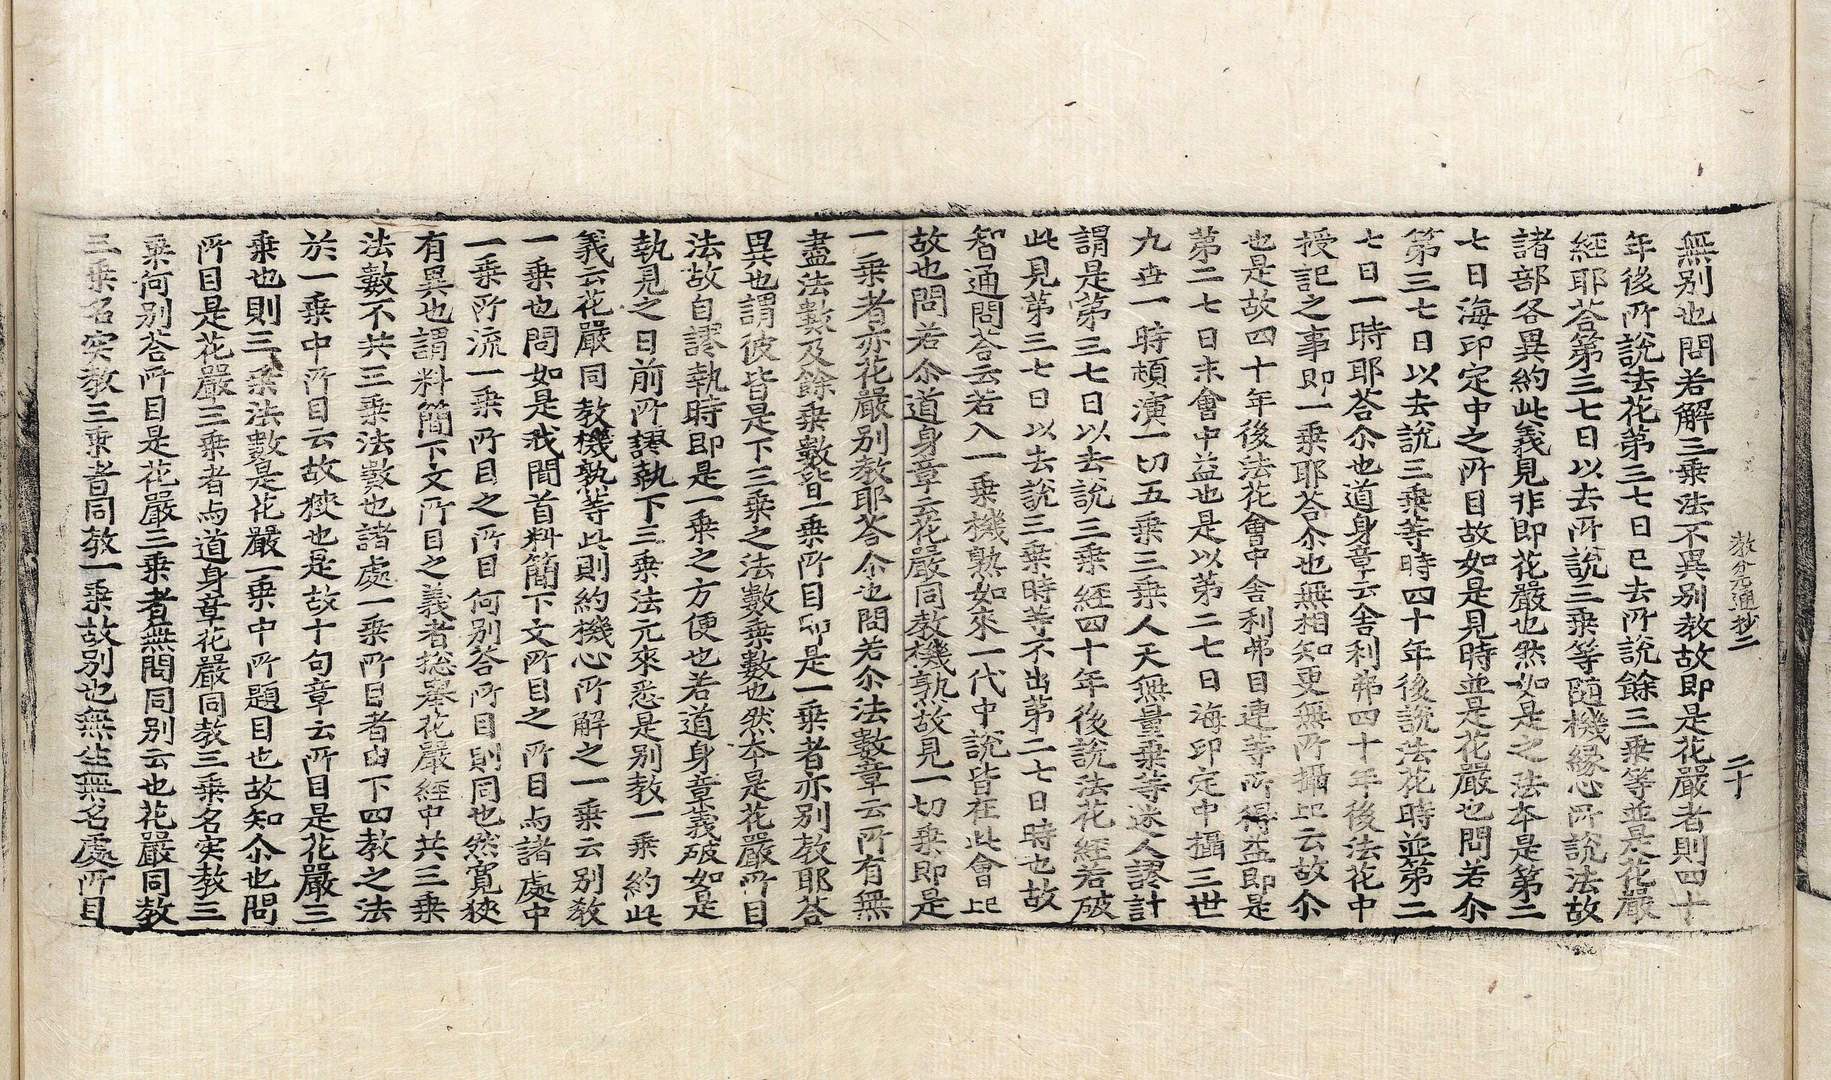 教分元通抄二　二十
無別也問若解三乘法不異別教故即是花嚴者則四十
年後所說法花第三七日已去所說餘三乘等並是花嚴
經耶荅第三七日以去所說三乘等隨機緣心所說法故
諸部各異約此義見非即花嚴也然如是之法本是第二
七日海印定中之所目故如是見時並是花嚴也問若尒
第三七日以去說三乘等時四十年後說法花時並第二
七日一時耶荅尒也道身章云舍利弗四十年後法花中
授記之事即一乘耶荅尒也無相知更無所攝上云故尒
也是故四十年後法花會中舍利弗目連等所得益即是
第二七日末會中益也是以第二七日海印定中攝三世
九世一時頓演一切五乘三乘人天無量乘等迷人謬計
謂是第三七日以去說三乘經四十年後說法花經若破
此見第三七日以去說三乘時等不出第二七日時也故
智通問荅云若入一乘機熟如來一代中說皆在此會上
故也問若尒道身章云花嚴同教機熟故見一切乘即是
一乘者亦花嚴別教耶荅尒也問若尒法數章云所有無
盡法數及餘乘數皆一乘所目即是一乘者亦別教耶荅
異也謂彼皆是下三乘之法數乘數也然本是花嚴所目
法故自謬執時即是一乘之方便也若道身章義破如是
執見之日前所謬執下三乘法元來悉是別教一乘約此
義云花嚴同教機熟等此則約機心所解之一乘云別教
一乘也問如是我聞首料簡下文所目之所目与諸處中
一乘所流一乘所目之所目何別荅所目則同也然寬狹
有異也謂料簡下文所目之義者捴舉花嚴經中共三乘
法數不共三乘法數也諸處一乘所目者由下四教之法
於一乘中所目云故狹也是故十句章云所目是花嚴三
乘也則三乘法數是花嚴一乘中所題目也故知尒也問
所目是花嚴三乘者与道身章花嚴同教三乘名实教三
乘何別荅所目是花嚴三乘者無問同別云也花嚴同教
三乘名实教三乘者同教一乘故別也無生無名處所目